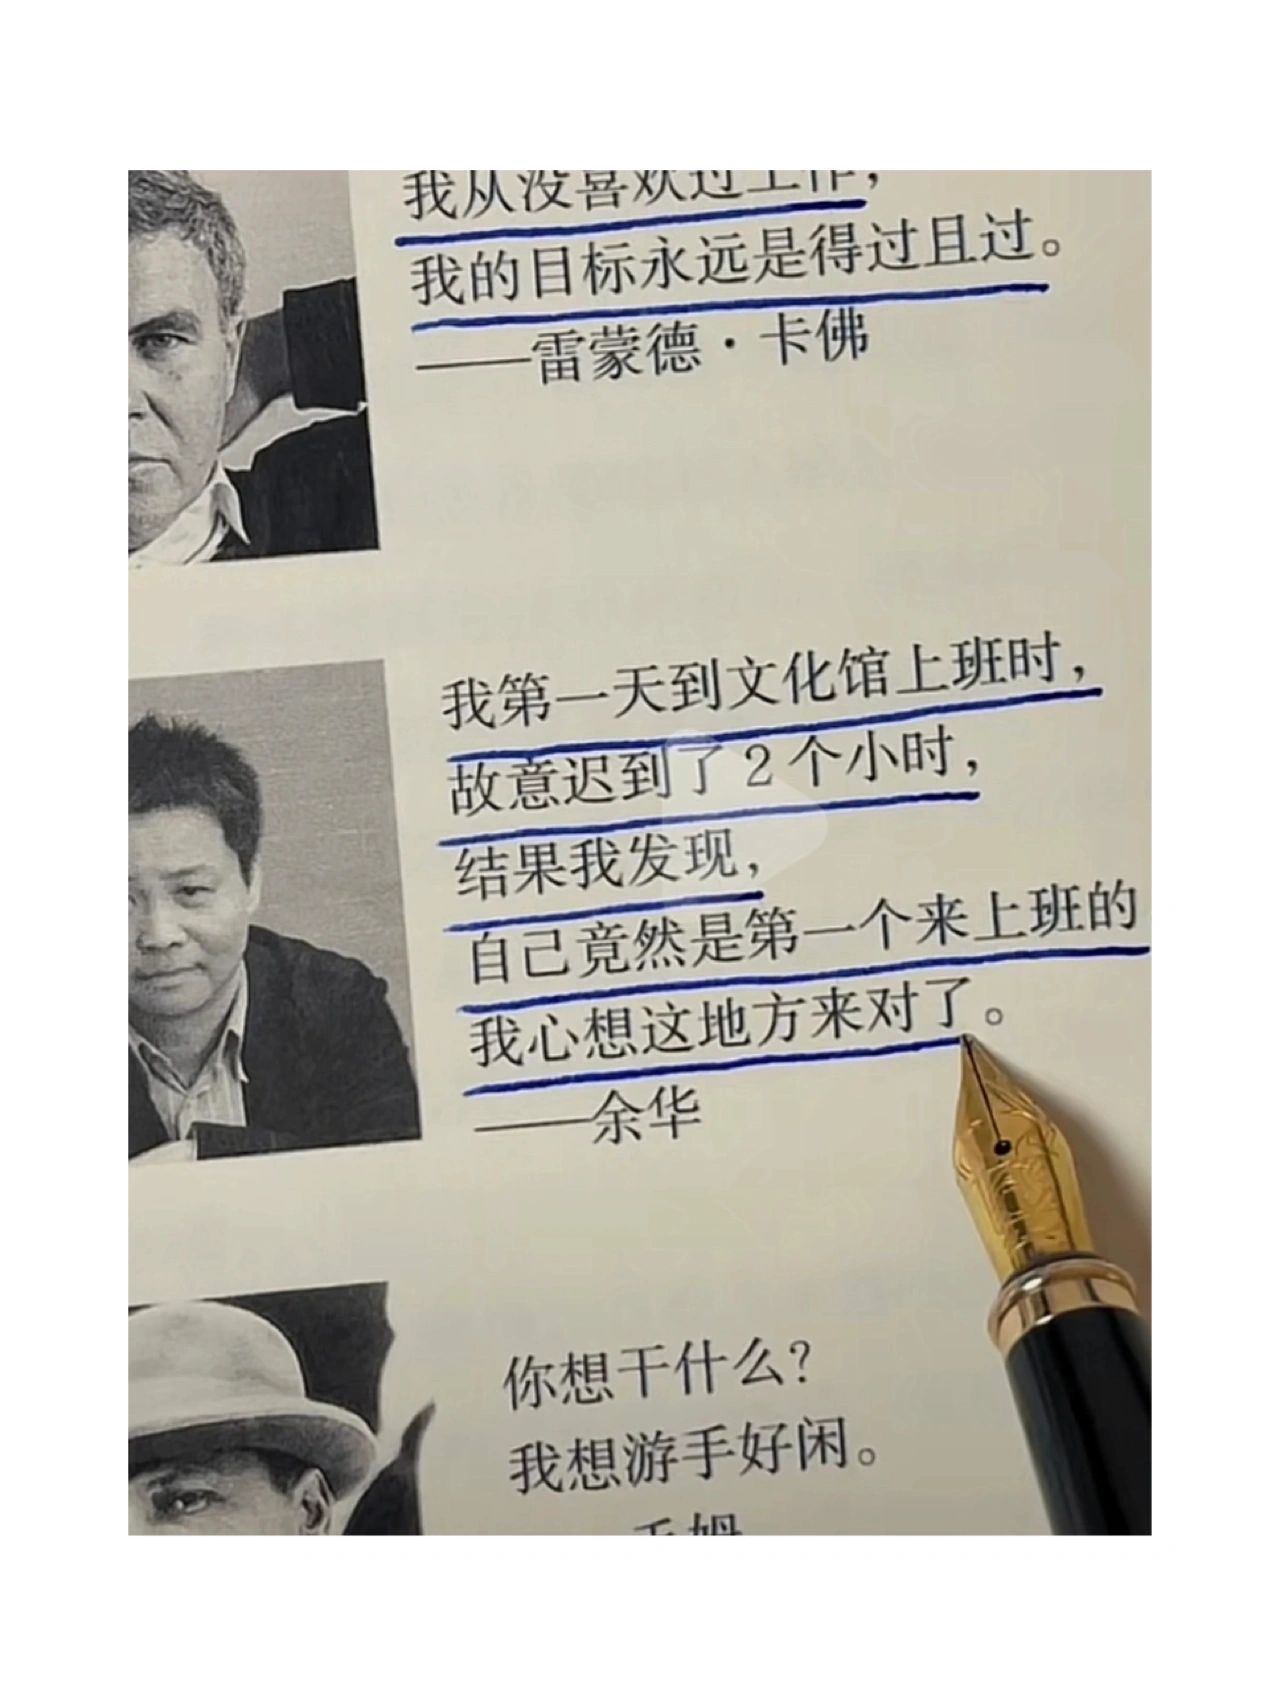 我从没喜欢过工作，
我的目标永远是得过且过。
——雷蒙德·卡佛
我第一天到文化馆上班时，
故意迟到了2个小时，
结果我发现，
自己竟然是第一个来上班的
我心想这地方来对了。
——余华
你想干什么？
我想游手好闲。